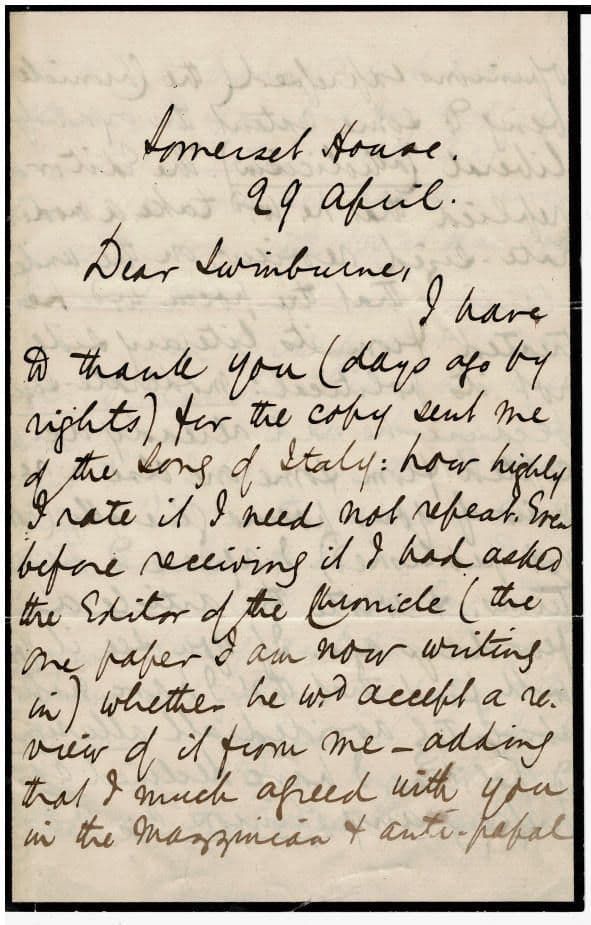 Somerset House.
29 April.
Dear Swinburne,
I have
to thank you (days ago by
rights) for the copy sent me
of the Song of Italy: how highly
I rate it I need not repeat. Even
before receiving it I had asked
the Editor of the Chronicle (the
one paper I am now writing
in) whether he wd accept a re-
view of it from me – adding
that I much agreed with you
in the Mazzinian & anti-papal